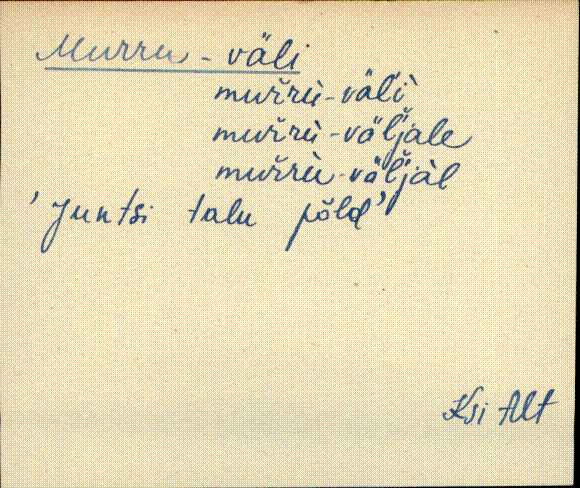 Murru-väli
mur̆rù-väl̆ì
mur̆rù-väl̆jale
mur̆rù-väl̆jàl
'Juntsi talu põld'
Ksi Alt